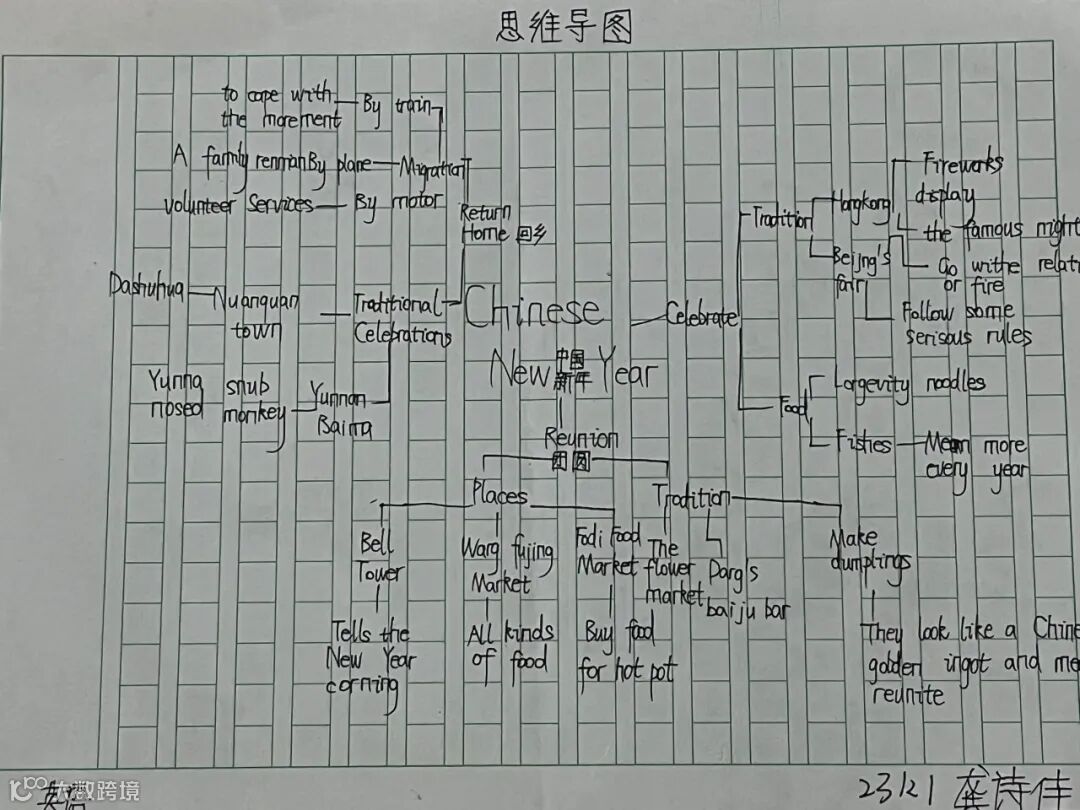 思维导图
to cope with
the morement
By train
A family renman By plane
Migration
volunteer services
By motor
Return
Home 回乡
Dashuhua
Nuanquan
town
Traditional
Celebrations
Yunna
nosed
snub
monkey
Yunnan
Baima
Chinese
New Year
中国
新年
Celebrate
Tradition
Hongkong
Fireworks
display
the famous might
Beijng's
fair
Go withe relati
or fire
Follow some
serisous rules
Food
Longevity noodles
Fishes
Mean more
every year
Reunion
团圆
Places
Bell
Tower
Tells the
New Year
corning
Wang fujing
Market
All kinds
of food
Fodi Food
Market
Buy food
for hot pot
Tradition
The
flower
market
Dang's
baiju bar
Make
dumplings
They look like a Chine
golden ingot and me
reunite
英语
23121 龚诗佳
大数跨境